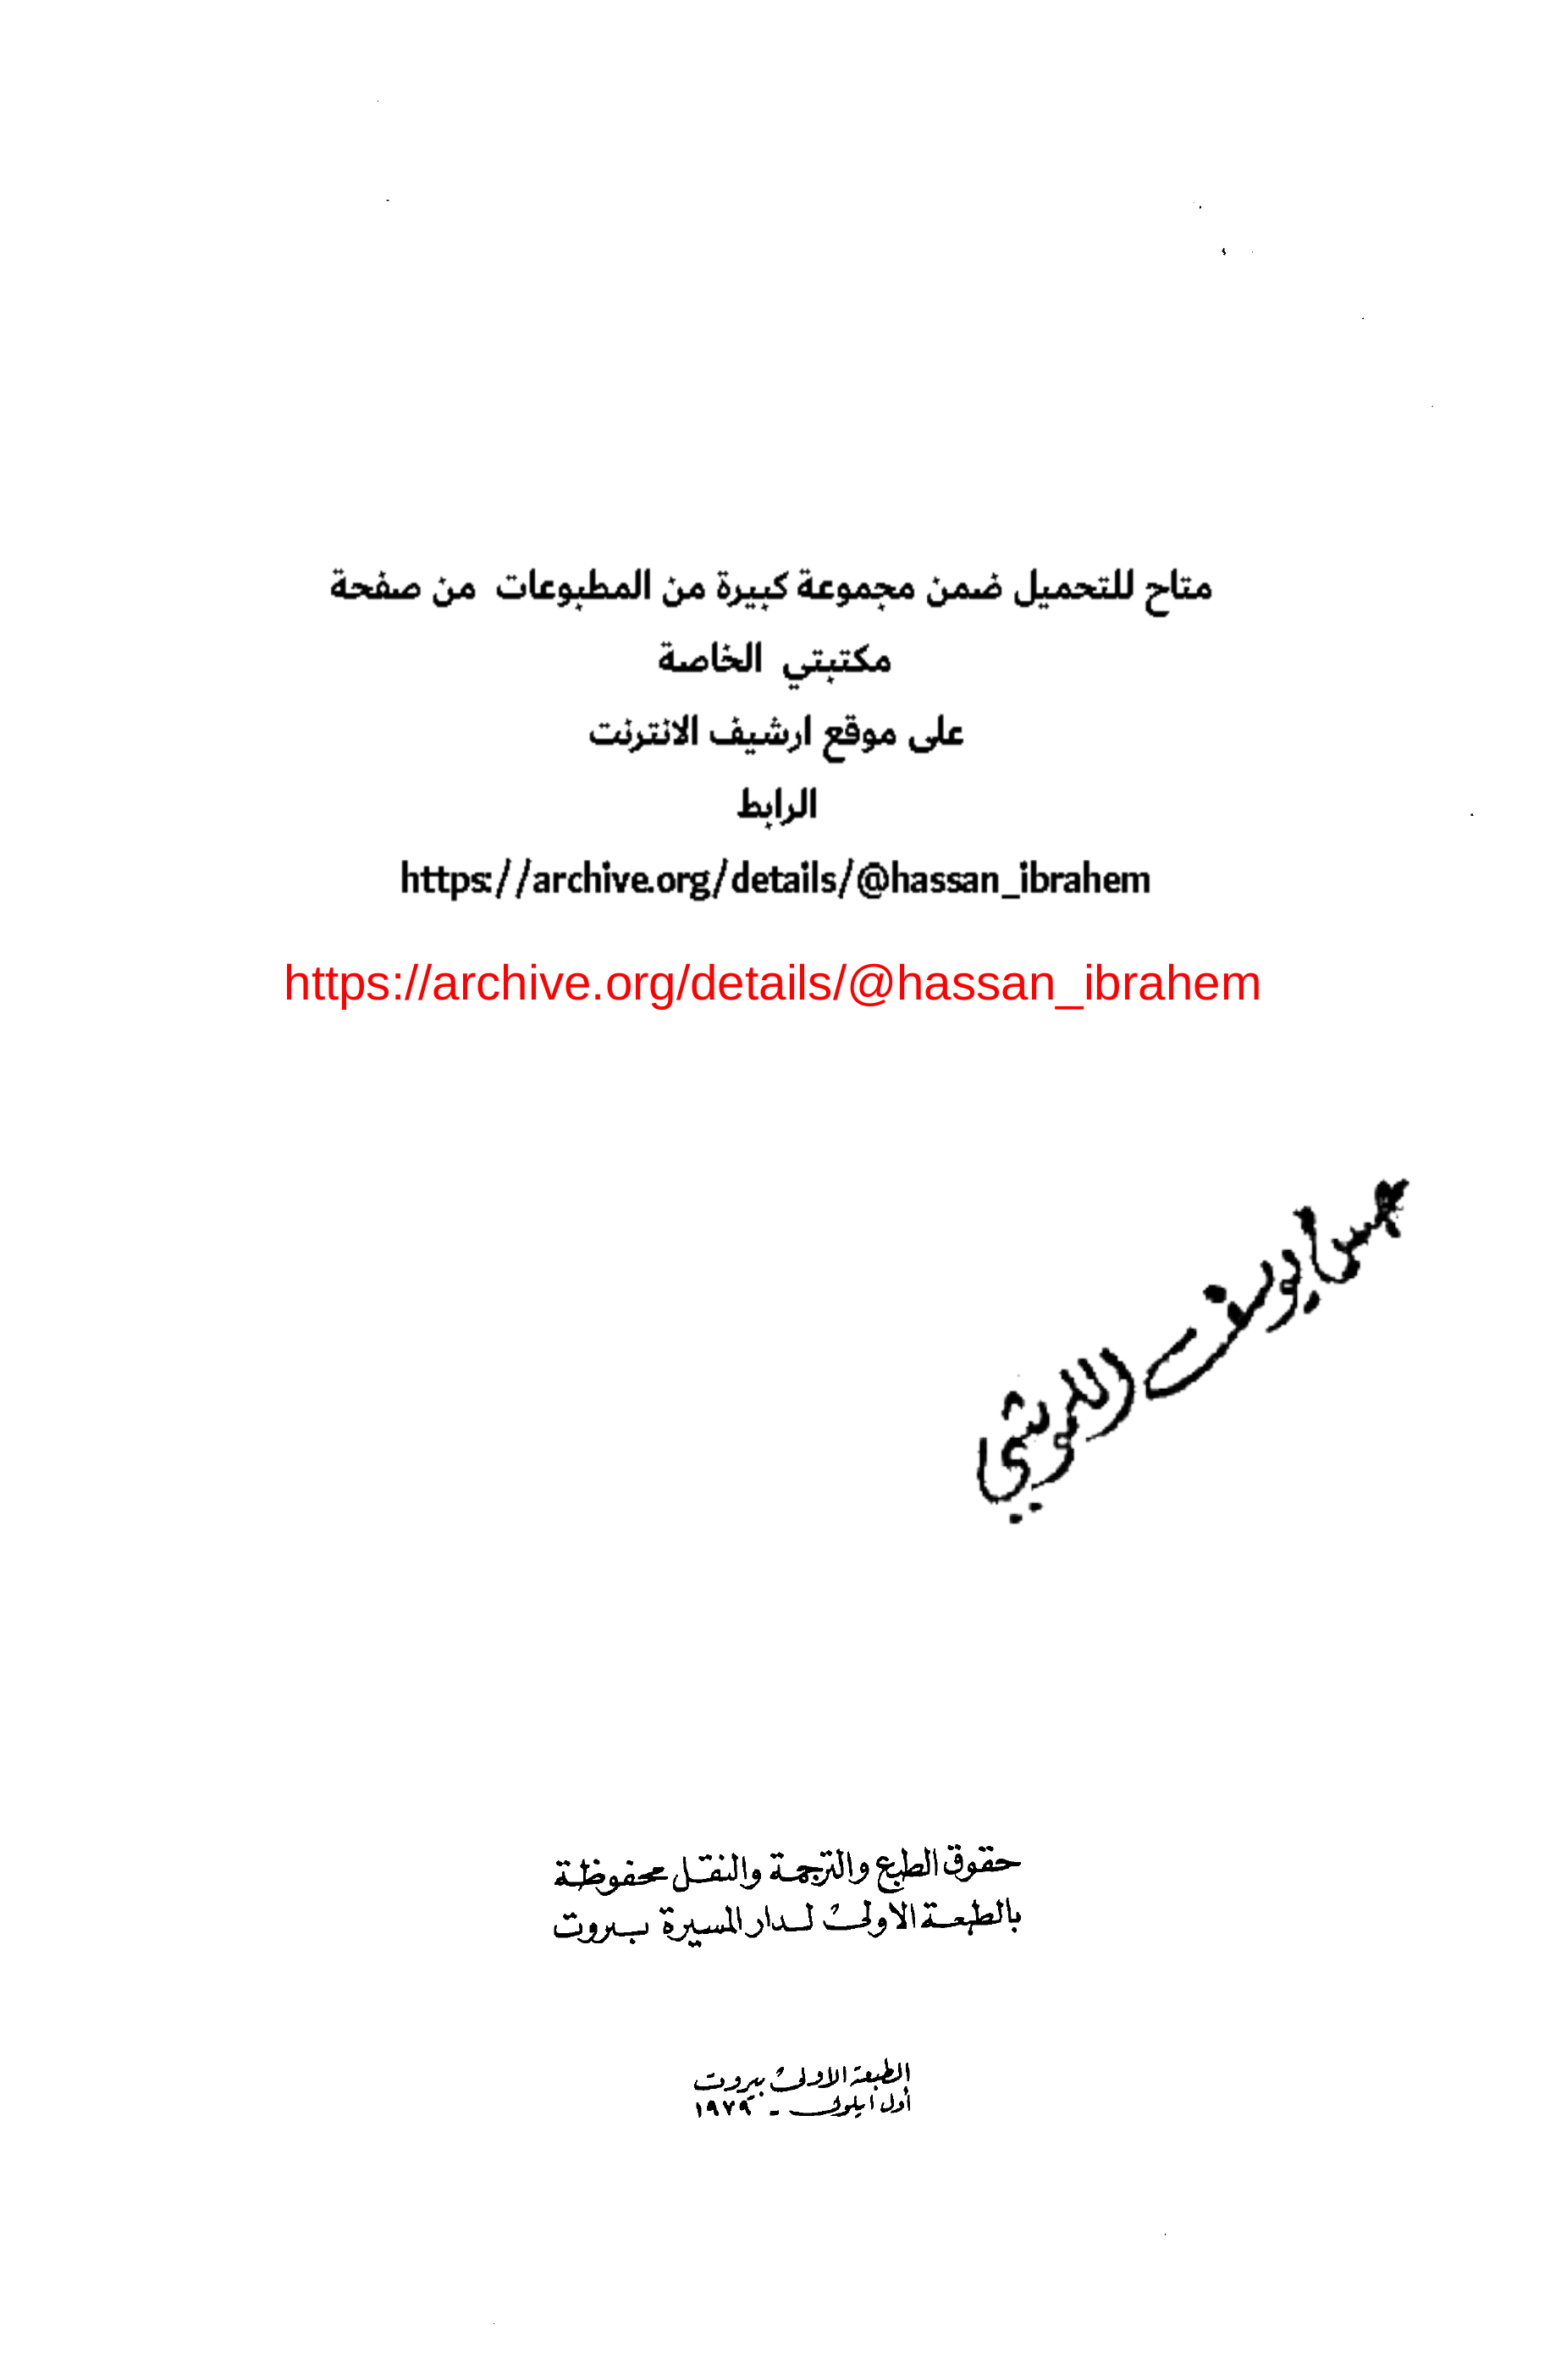 متاح للتحميل ضمن مجموعة كبيرة من المطبوعات من صفحة
مكتبتي الخاصة
على موقع ارشيف الانترنت
الرابط
https://archive.org/details/@hassan_ibrahem
https://archive.org/details/@hassan_ibrahem
يوسف
حقوق الطبع والترجمة والنقل محفوظة
بالطبعة الاولى لدار المسيرة بيروت
الطبعة الاولى بيروت
أول ايلول - ١٩٧٩